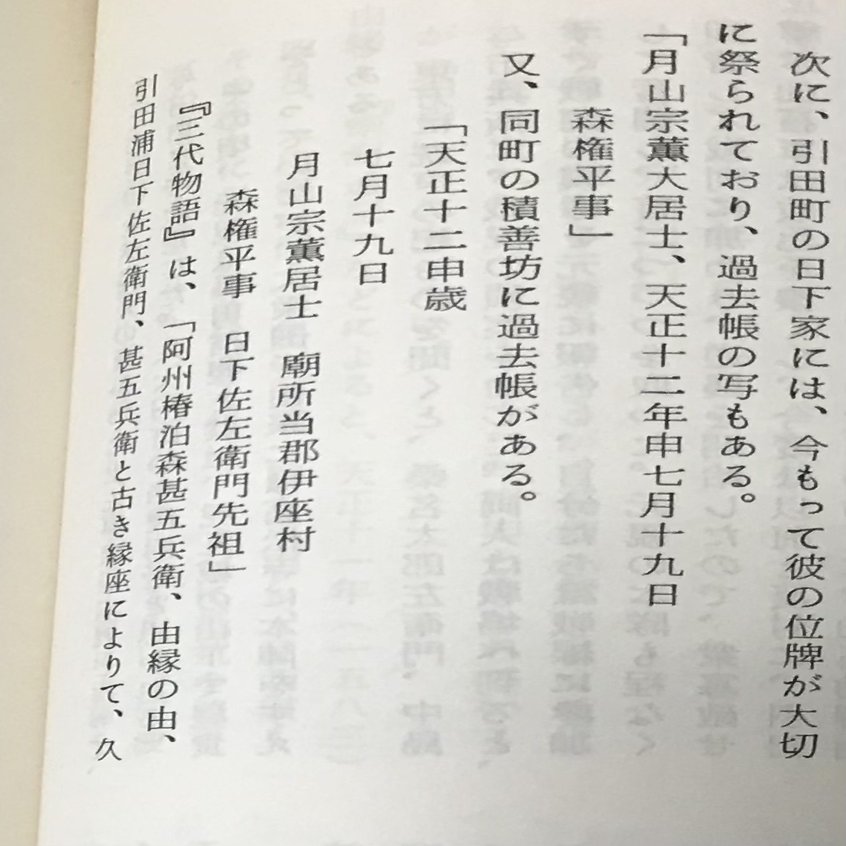 次に、引田町の日下家には、今もって彼の位牌が大切
に祭られており、過去帳の写もある。
「月山宗薫大居士、天正十二年申七月十九日
森権平事」
又、同町の積善坊に過去帳がある。
「天正十二申歳
七月十九日
月山宗薫居士　廟所当郡伊座村
森権平事　日下佐左衛門先祖」
『三代物語』は、「阿州椿泊森甚五兵衛、由縁の由、
引田浦日下佐左衛門、甚五兵衛と古き縁座によりて、久